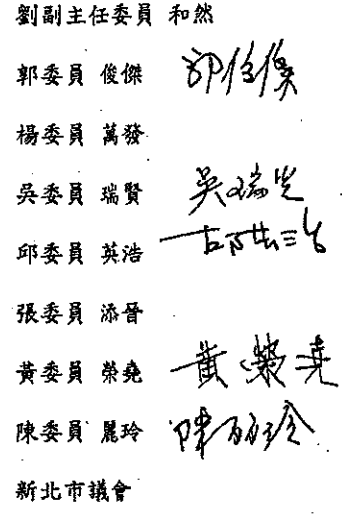 劉副主任委員 和然
郭委員 俊傑 郭俊傑
楊委員 萬發
吳委員 瑞賢 吳瑞賢
邱委員 英浩
張委員 添晉
黃委員 榮堯 黃榮堯
陳委員 麗玲 陳麗玲
新北市議會